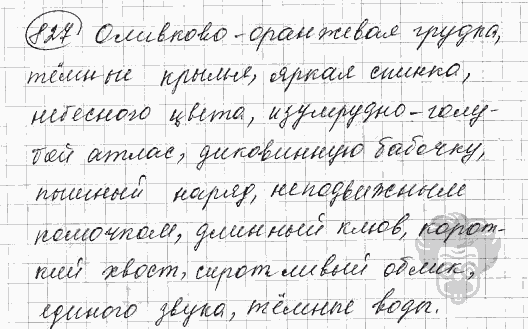 827 Оливково-оранжевая грудка,
тёмные крылья, яркая спинка,
небесного цвета, изумрудно-голу-
бой атлас, диковинную бабочку,
пышный наряд, неподвижным
комочком, длинный клюв, корот-
кий хвост, сиротливый облик,
единого звука, тёмные воды.